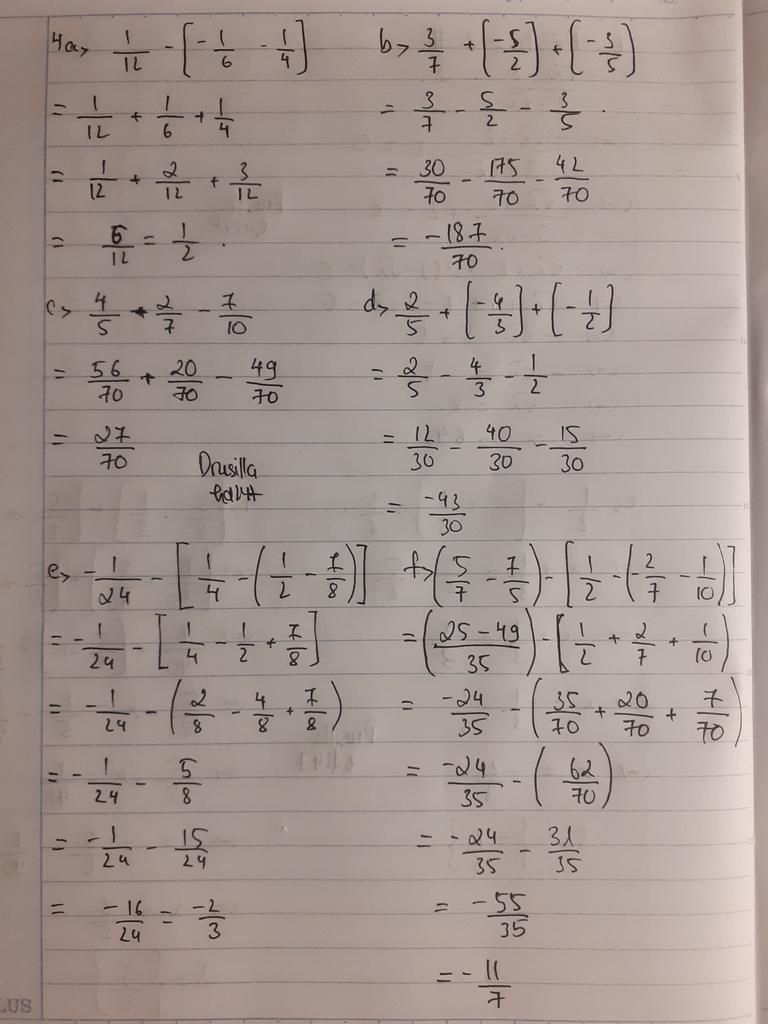 4a> 1/12 - [-1/6 - 1/4]
= 1/12 + 1/6 + 1/4
= 1/12 + 2/12 + 3/12
= 6/12 = 1/2 .
b> 3/7 + (-5/2] + [-3/5)
= 3/7 - 5/2 - 3/5 .
= 30/70 - 175/70 - 42/70
= -187/70 .
c> 4/5 + 2/7 - 7/10
= 56/70 + 20/70 - 49/70
= 27/70
Drusilla
d> 2/5 + [-4/3] + [-1/2]
= 2/5 - 4/3 - 1/2
= 12/30 - 40/30 - 15/30
= -43/30
e> -1/24 - [1/4 - (1/2 - 7/8)]
= -1/24 - [1/4 - 1/2 + 7/8]
= -1/24 - (2/8 - 4/8 + 7/8)
= -1/24 - 5/8
= -1/24 - 15/24
= -16/24 = -2/3
f> (5/7 - 7/5) - [1/2 - (-2/7 - 1/10)]
= (25 - 49/35) - [1/2 + 2/7 + 1/10)
= -24/35 - (35/70 + 20/70 + 7/70)
= -24/35 - (62/70)
= -24/35 - 31/35
= -55/35
= -11/7
LUS